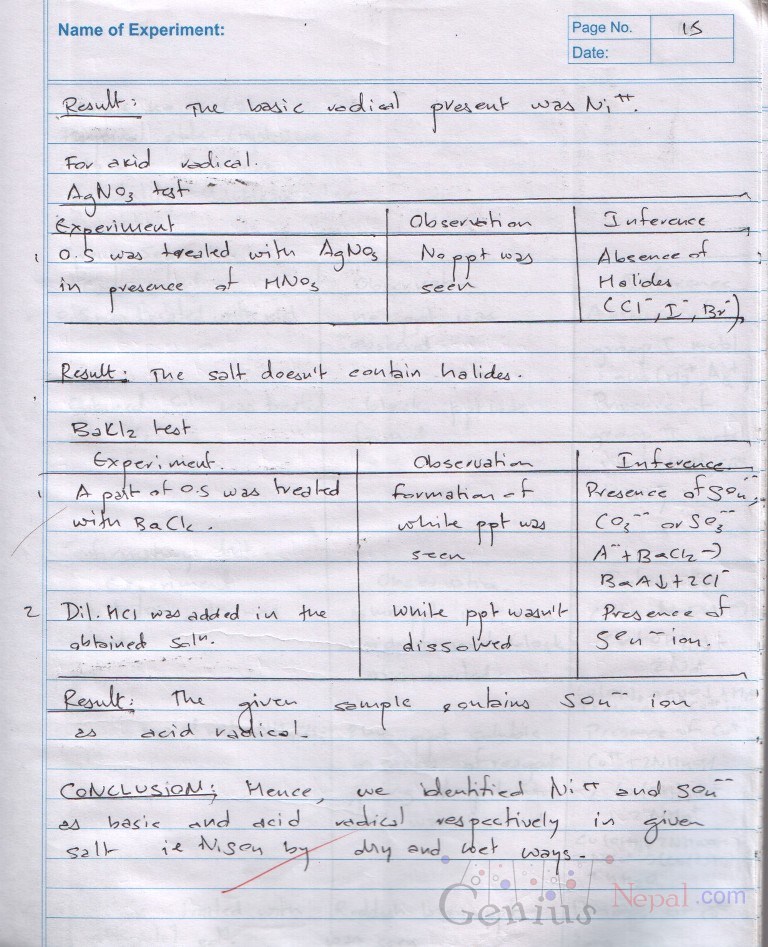 Name of Experiment:
Page No. 15
Date:
Result: The basic radical present was Ni++.
For acid radical.
AgNO3 test
Experiment Observation Inference
1 O.S was treated with AgNO3 No ppt was Absence of
in presence of HNO3 seen Halides
(Cl-, I-, Br-)
Result: The salt doesn't contain halides.
BaCl2 test
Experiment. Observation Inference
1 A part of O.S was treated formation of Presence of SO4--,
with BaCl2. white ppt was CO3-- or SO3--
seen A-- + BaCl2 →
BaA↓ + 2Cl-
2 Dil. HCl was added in the white ppt wasn't Presence of
obtained soln. dissolved SO4-- ion.
Result: The given sample contains SO4-- ion
as acid radical.
CONCLUSION: Hence, we identified Ni++ and SO4--
as basic and acid radical respectively in given
salt ie NiSO4 by dry and wet ways.
Genius Nepal.com